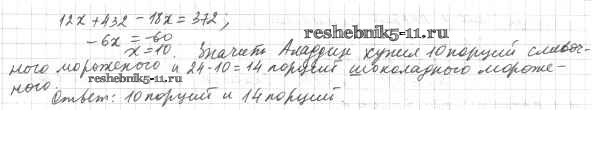 12x + 432 - 18x = 372;
reshebnik5-11.ru
-6x = -60
x = 10. Значит Аладдин купил 10 порций сливоч-
ного мороженого и 24-10=14 порций шоколадного мороже-
reshebnik5-11.ru
ного.
Ответ: 10 порций и 14 порций.